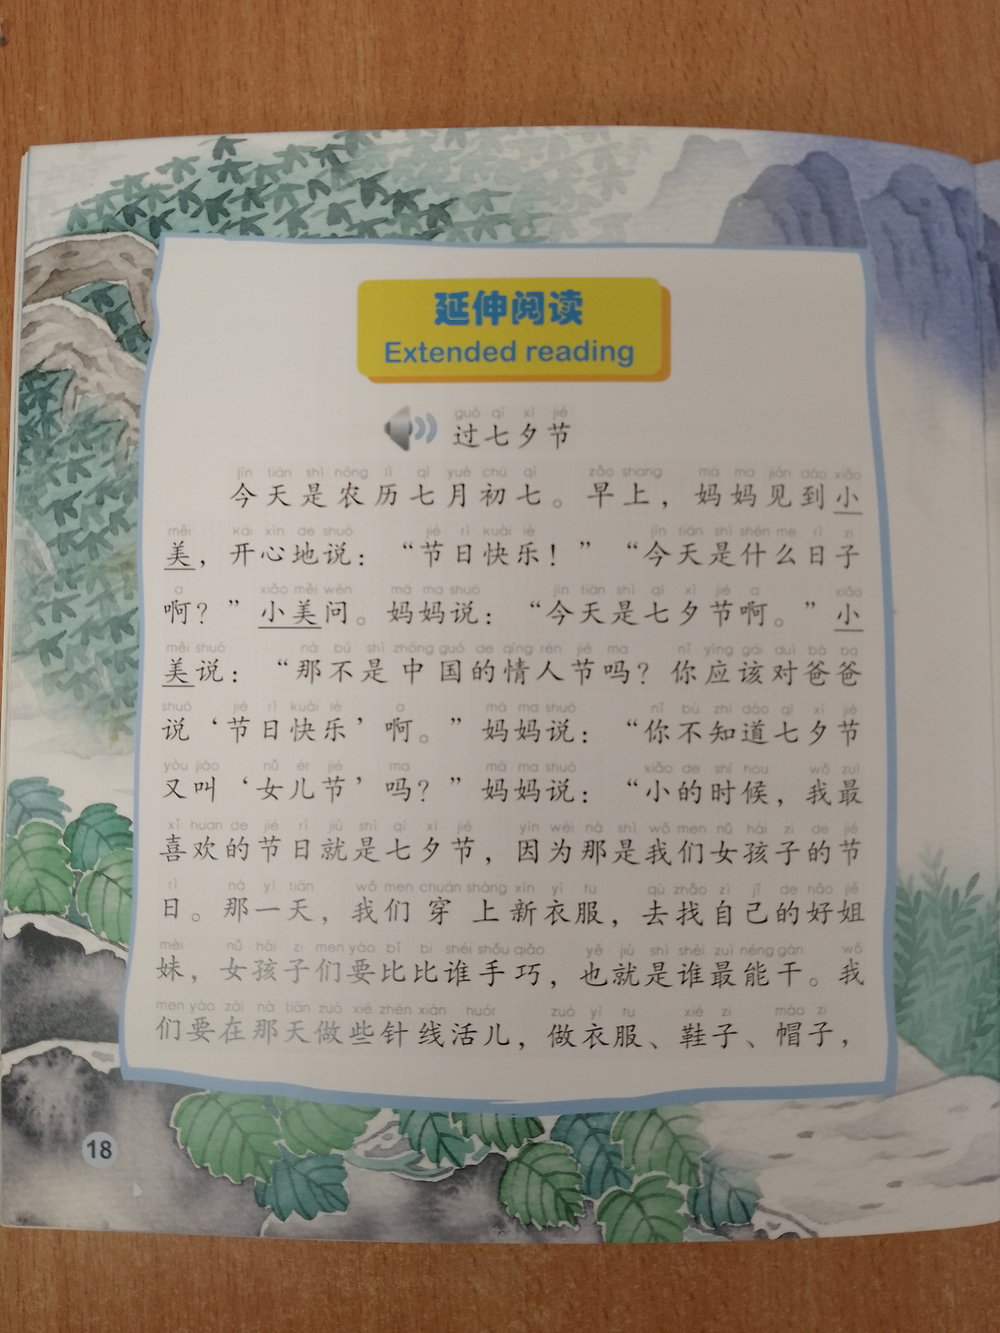 延伸阅读
Extended reading
guò qī xī jié
过七夕节
jīn tiān shì nóng lì qī yuè chū qī zǎo shang mā ma jiàn dào xiǎo
今天是农历七月初七。早上，妈妈见到小
měi kāi xīn de shuō jié rì kuài lè jīn tiān shì shén me rì zi
美，开心地说：“节日快乐！”“今天是什么日子
a xiǎo měi wèn mā ma shuō jīn tiān shì qī xī jié a xiǎo
啊？”小美问。妈妈说：“今天是七夕节啊。”小
měi shuō nà bú shì zhōng guó de qíng rén jié ma nǐ yīng gāi duì bà ba
美说：“那不是中国的情人节吗？你应该对爸爸
shuō jié rì kuài lè a mā ma shuō nǐ bù zhī dào qī xī jié
说‘节日快乐’啊。”妈妈说：“你不知道七夕节
yòu jiào nǚ ér jié ma mā ma shuō xiǎo de shí hou wǒ zuì
又叫‘女儿节’吗？”妈妈说：“小的时候，我最
xǐ huan de jié rì jiù shì qī xī jié yīn wèi nà shì wǒ men nǚ hái zi de jié
喜欢的节日就是七夕节，因为那是我们女孩子的节
rì nà yì tiān wǒ men chuān shàng xīn yī fu qù zhǎo zì jǐ de hǎo jiě
日。那一天，我们穿上新衣服，去找自己的好姐
mèi nǚ hái zi men yào bǐ bi shéi shǒu qiǎo yě jiù shì shéi zuì néng gàn wǒ
妹，女孩子们要比比谁手巧，也就是谁最能干。我
men yào zài nà tiān zuò xiē zhēn xiàn huór zuò yī fu xié zi mào zi
们要在那天做些针线活儿，做衣服、鞋子、帽子，
18